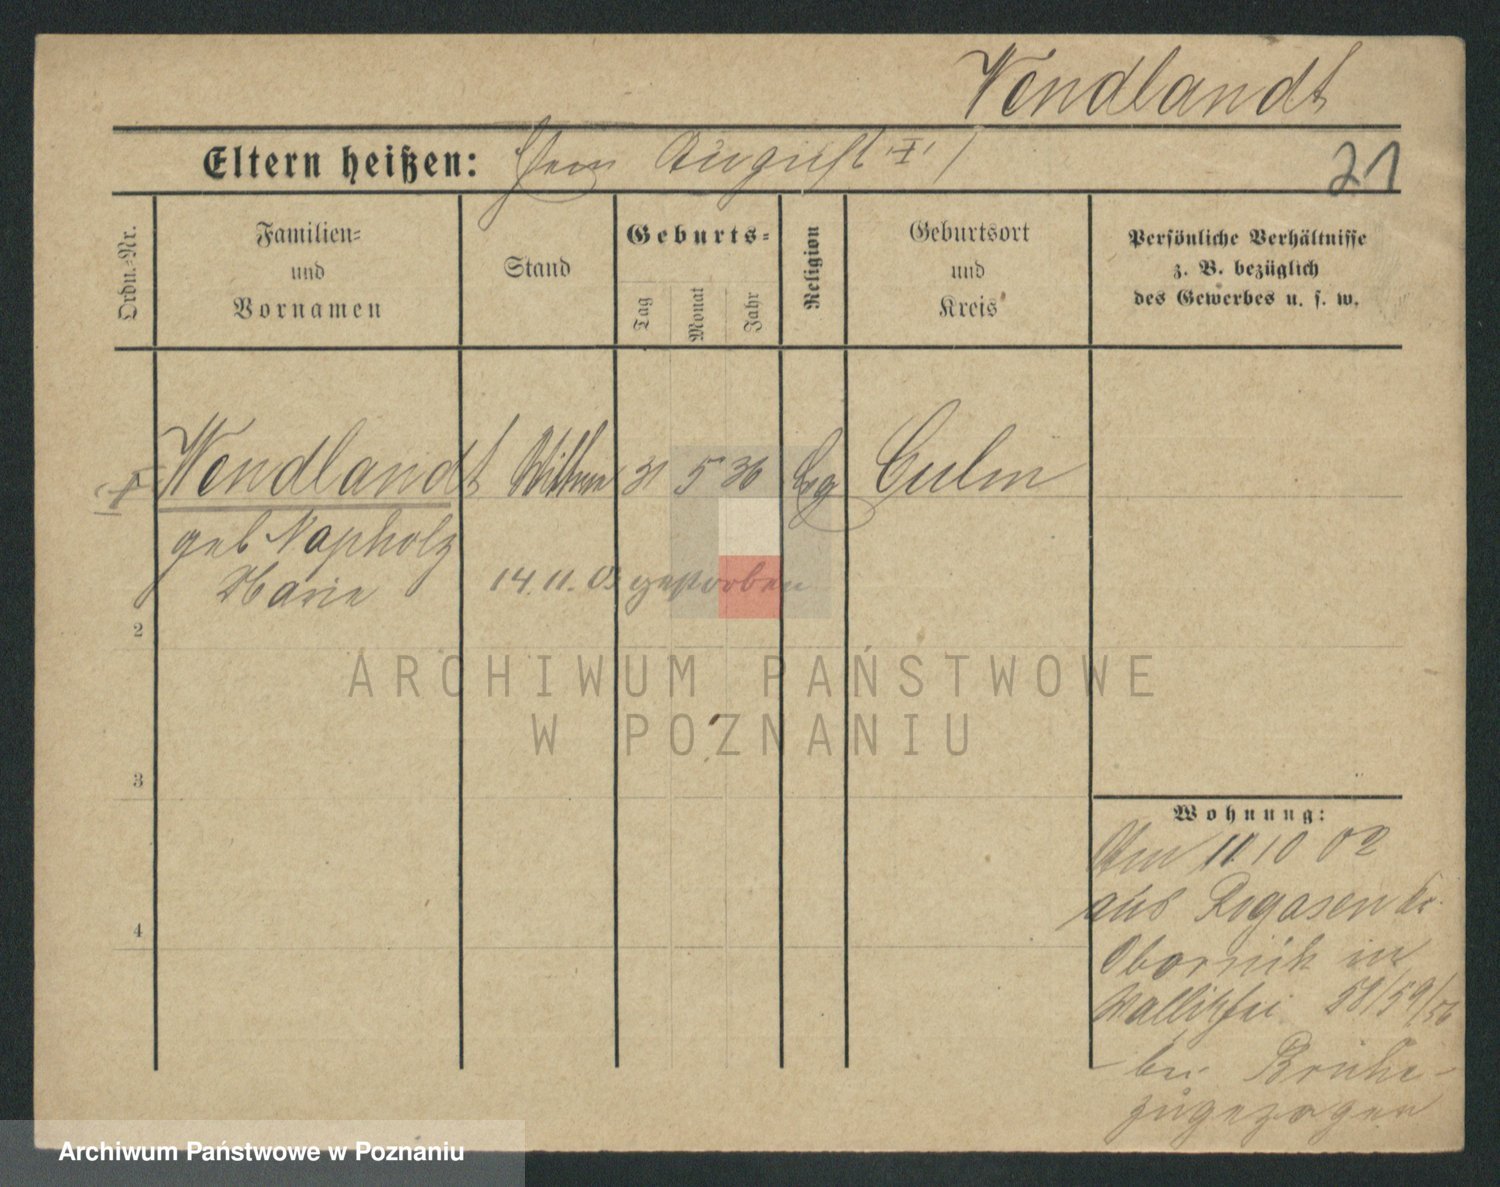 Wendlandt
Eltern heißen: August I
21
Ordn.-Nr.
Familien-
und
Vornamen
Stand
Geburts-
Tag
Monat
Jahr
Religion
Geburtsort
und
Kreis
Persönliche Verhältnisse
z. B. bezüglich
des Gewerbes u. s. w.
Wendlandt 31 5 36 Culm
geb Napholz
Marie
14. 11. 03 gestorben
2
3
4
ARCHIWUM PAŃSTWOWE
W POZNANIU
Wohnung:
11 10 02
aus Rogasen Kr.
Obornik in
58/59/
bei
zugezogen
Archiwum Państwowe w Poznaniu